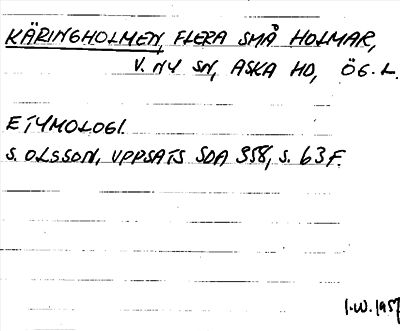 KÄRINGHOLMEN, FLERA SMÅ HOLMAR,
V. NY SN, ASKA HD, ÖG. L.
ETYMOLOGI.
S. OLSSON, UPPSATS SOA 358, S. 63 F.
I.W. 1957